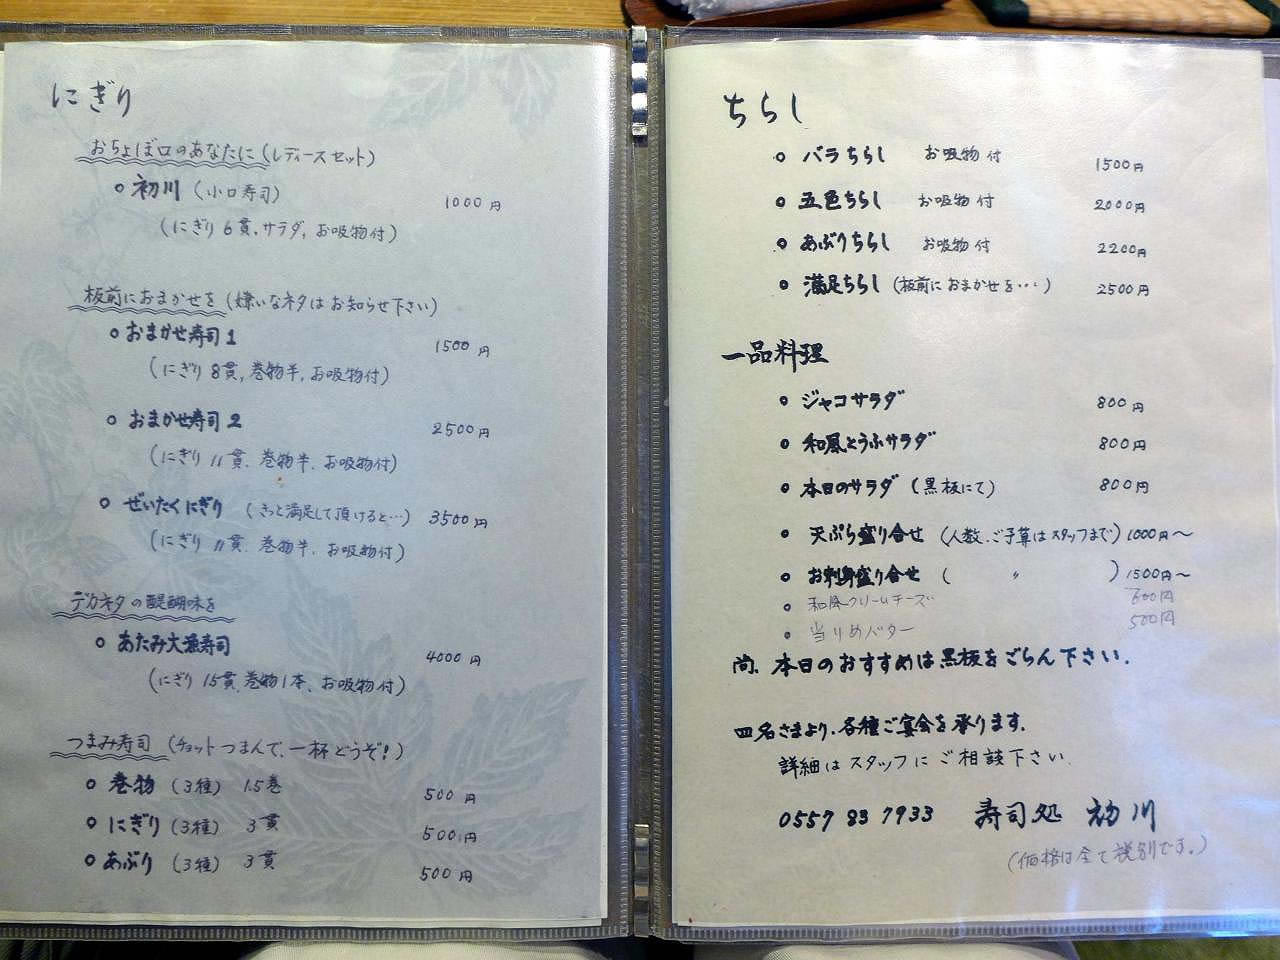 にぎり
おちょぼ口のあなたに(レディースセット)
○ 初川 (小口寿司) 1000円
(にぎり6貫,サラダ,お吸物付)
板前におまかせを(嫌いなネタはお知らせ下さい)
○ おまかせ寿司1 1500円
(にぎり8貫,巻物半,お吸物付)
○ おまかせ寿司2 2500円
(にぎり11貫、巻物半、お吸物付)
○ ぜいたくにぎり (きっと満足して頂けると…) 3500円
(にぎり11貫、巻物半、お吸物付)
デカネタの醍醐味を
○ あたみ大漁寿司 4000円
(にぎり15貫、巻物1本、お吸物付)
つまみ寿司(チョットつまんで、一杯どうぞ!)
○ 巻物(3種) 1.5巻 500円
○ にぎり(3種) 3貫 500円
○ あぶり(3種) 3貫 500円
ちらし
○ バラちらし お吸物付 1500円
○ 五色ちらし お吸物付 2000円
○ あぶりちらし お吸物付 2200円
○ 満足ちらし(板前におまかせを…) 2500円
一品料理
○ ジャコサラダ 800円
○ 和風とうふサラダ 800円
○ 本日のサラダ(黒板にて) 800円
○ 天ぷら盛り合せ(人数、ご予算はスタッフまで) 1000円〜
○ お刺身盛り合せ( 〃 ) 1500円〜
○ 和風クリームチーズ 600円
○ 当りめバター 500円
尚、本日のおすすめは黒板をごらん下さい.
四名さまより、各種ご宴会を承ります.
詳細はスタッフにご相談下さい.
0557 83 7933 寿司処 初川
(価格は全て税別です。)